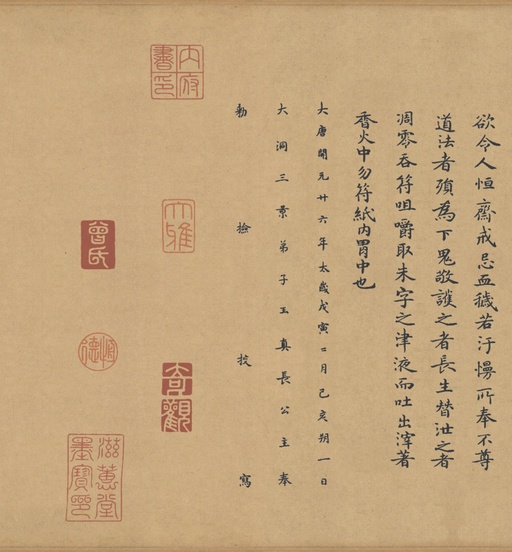 欲令人恒齋戒忌血穢若汙慢所奉不尊
道法者殞為下鬼敬護之者長生替泄之者
凋零吞符咀嚼取朱字之津液而吐出滓著
香火中勿符紙內胃中也
大唐開元廿六年太歲戊寅二月己亥朔一日
大洞三景弟子玉真長公主奉
勅檢挍寫
內府書印
大雅
奇觀
曾氏
滋蕙堂墨寶印